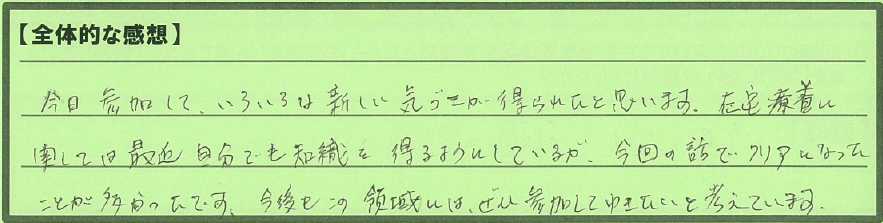 【全体的な感想】
今日参加して、いろいろな新しい気づきが得られたと思います。在宅療養に
関しては最近自分でも知識を得るようにしているが、今回の話でクリアになった
ことが多かったです。今後もこの領域には、ぜひ参加してゆきたいと考えています。